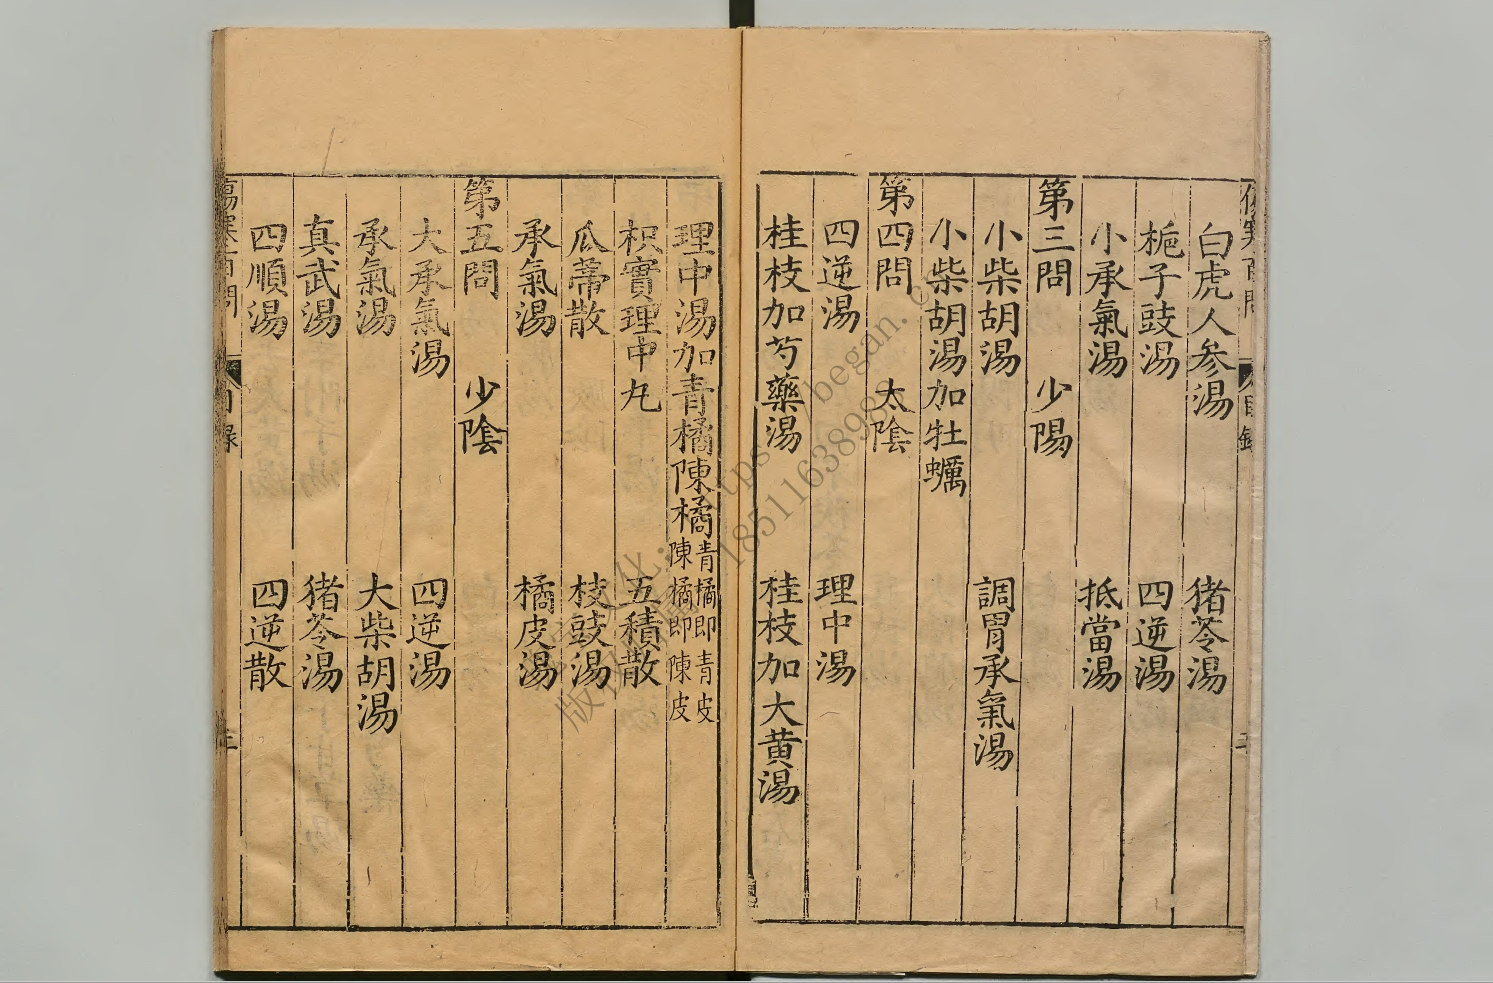 白虎人参湯 猪苓湯
梔子豉湯 四逆湯
小承氣湯 抵當湯
第三問 少陽
小柴胡湯 調胃承氣湯
小柴胡湯加牡蠣
第四問 太陰
四逆湯 理中湯
桂枝加芍藥湯 桂枝加大黄湯
理中湯加青橘陳橘 青橘即青皮 陳橘即陳皮
枳實理中丸 五積散
瓜蔕散 枝豉湯
承氣湯 橘皮湯
第五問 少陰
大承氣湯 四逆湯
承氣湯 大柴胡湯
真武湯 猪苓湯
四順湯 四逆散
傷寒百問 目録
18511638989